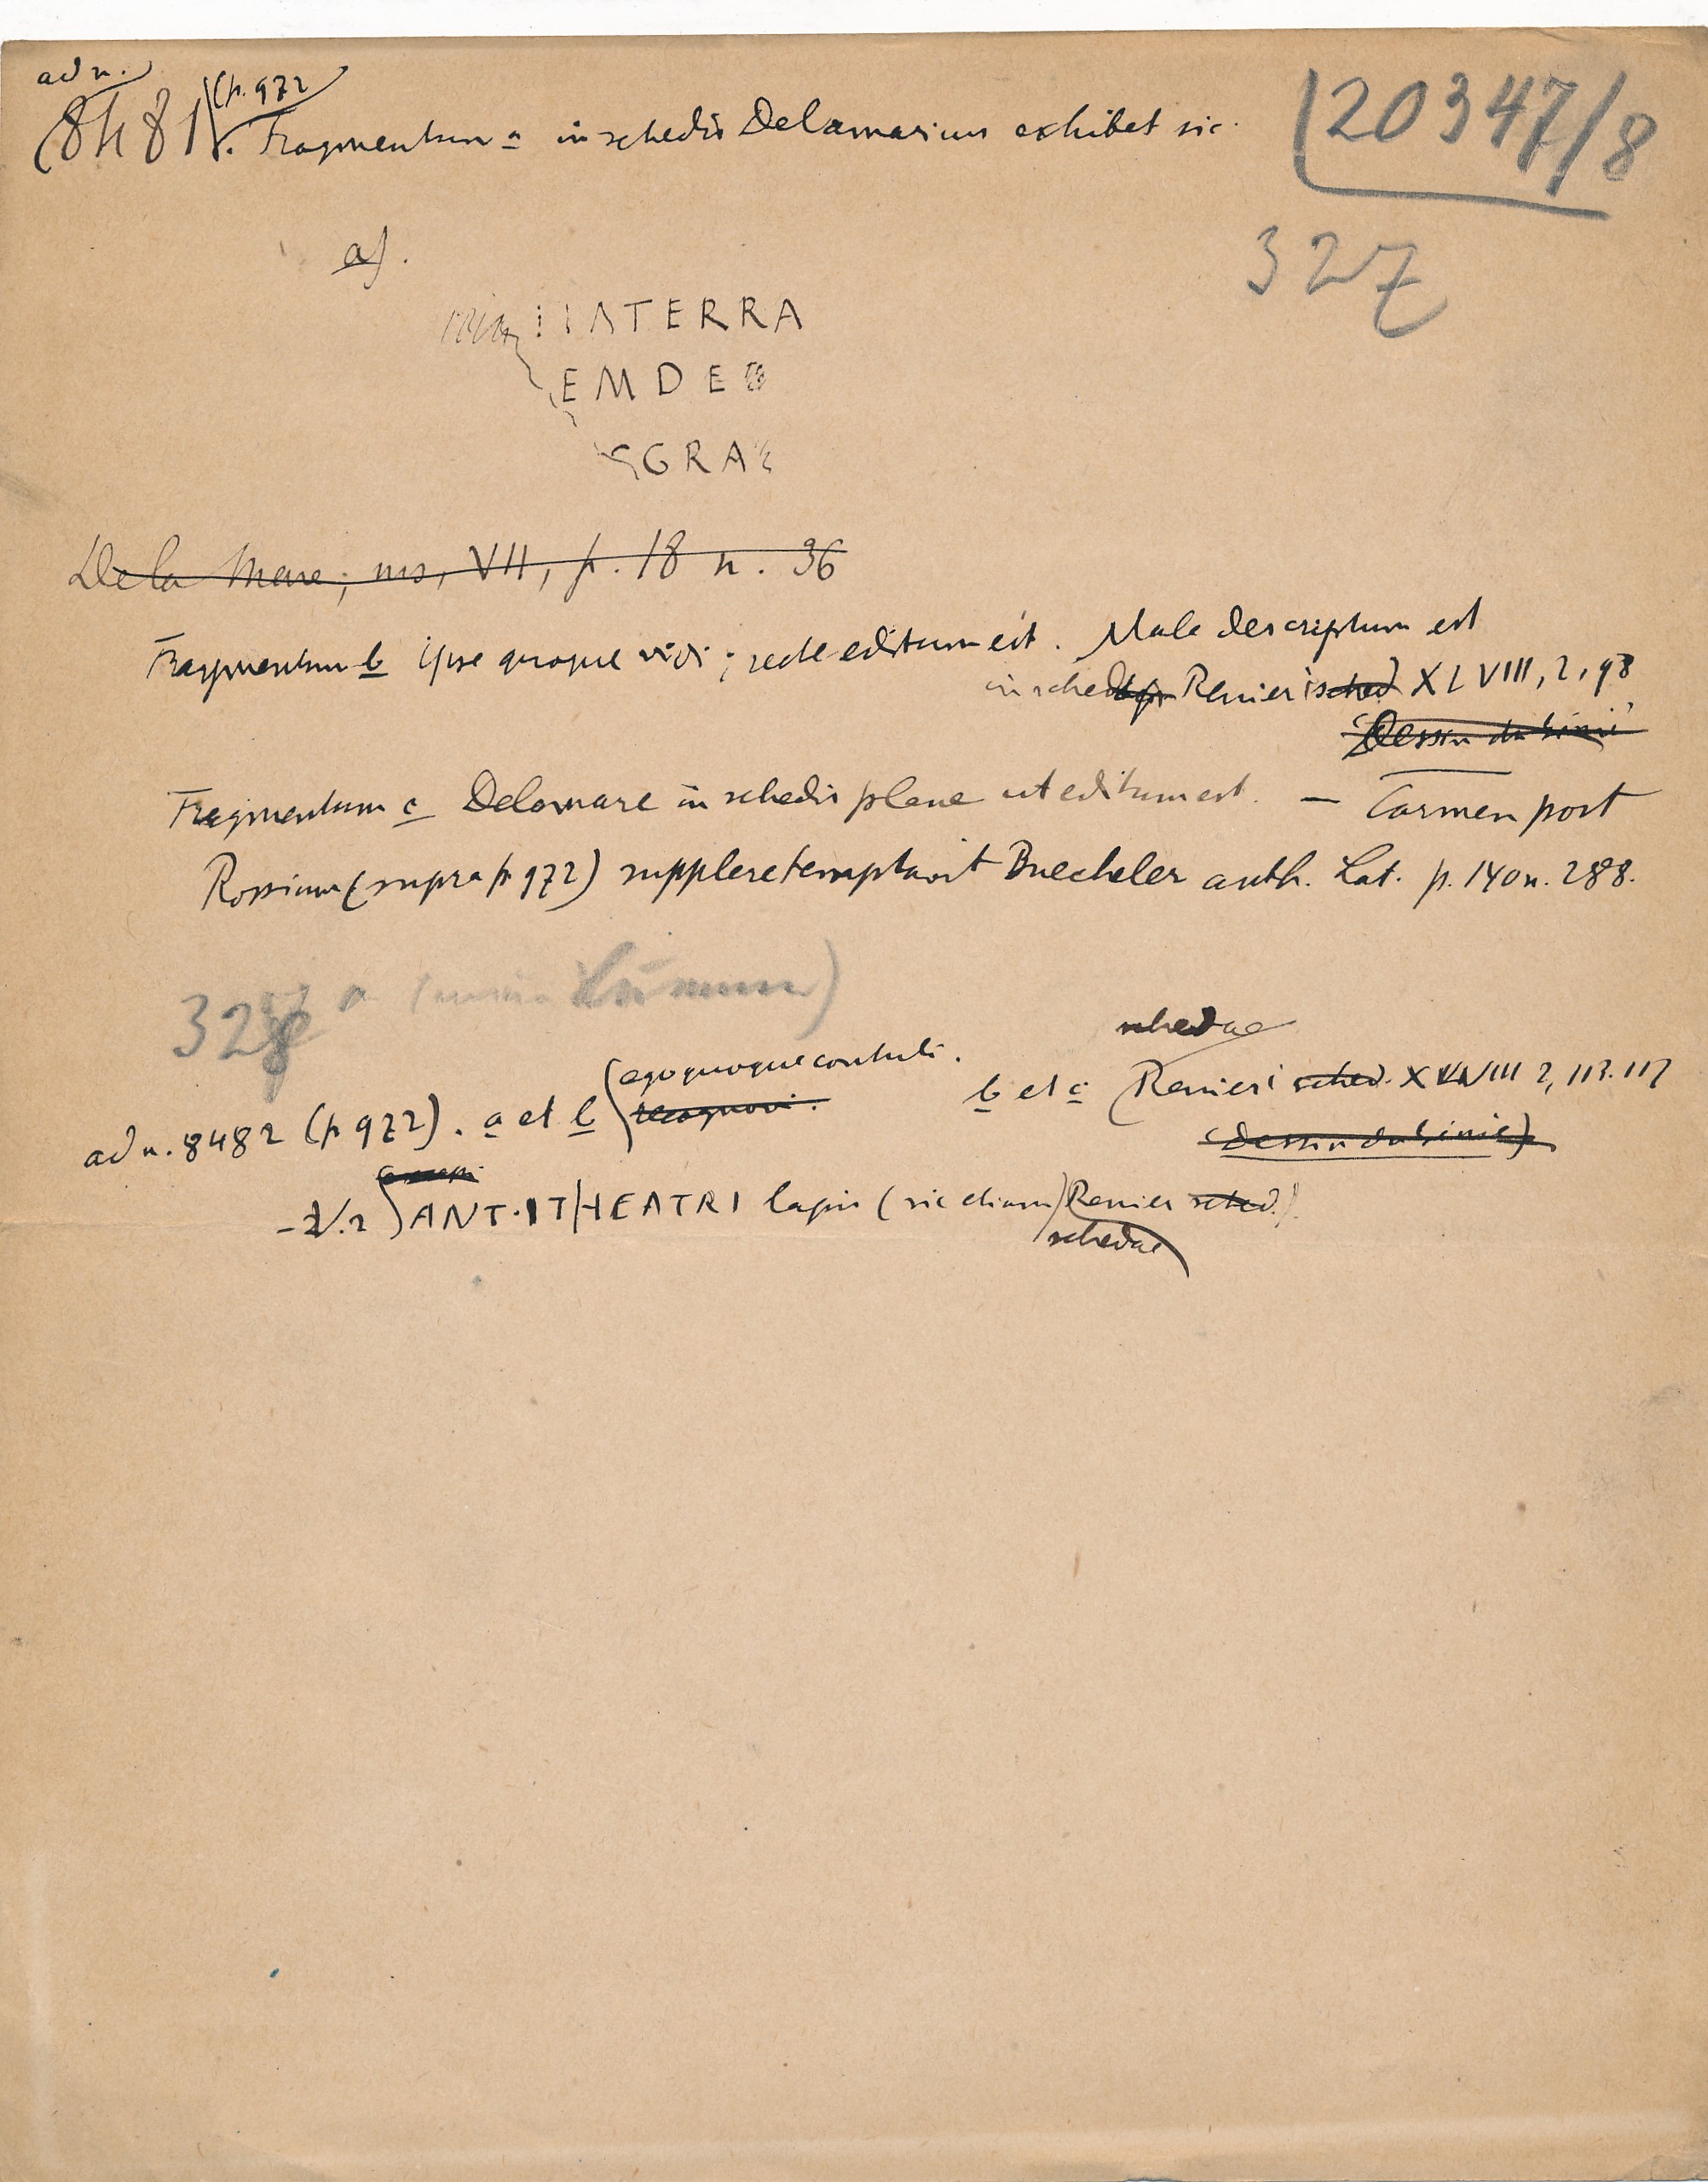 ad n.
8481 (p. 972). Fragmentum a in schedis Delamarius exhibet sic.
20347/8
327
a).
IATERRA
EMDE
GRA
De la Mare; ms, VII, p. 18 n. 36
Fragmentum b ipse quoque vidi; recte editum est. Male descriptum est
in sched Renieri sched XLVIII, 2, 98
Dessin du
Fragmentum c Delamare in schedis plane ut editum est. — Carmen post
Rossium (supra p 972) supplere temptavit Buecheler anth. Lat. p. 140 n. 288.
328
schedae
ego quoque contuli.
ad n. 8482 (p 972). a et b recognovi. b et c Renieri sched. XLVIII 2, 113. 117
(Dessin du
- v. 2 ANT·IT/HEATRI lapis (sic etiam) Renier sched.)
schedae